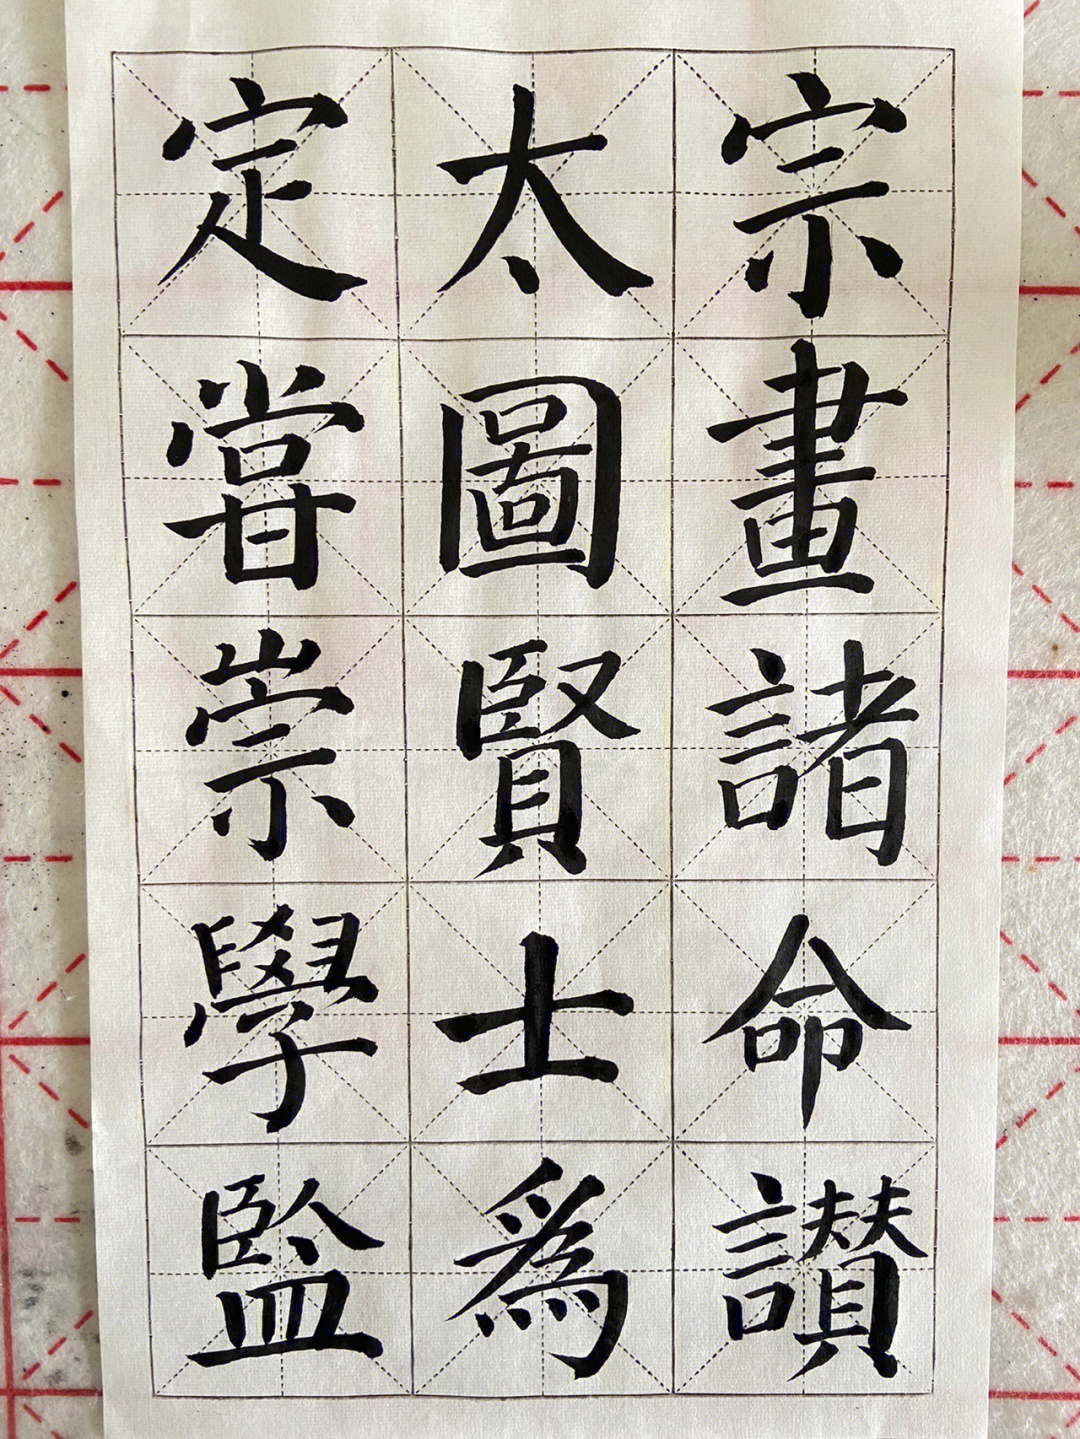 定太宗
甞圖畫
崇賢諸
學士命
監爲讃